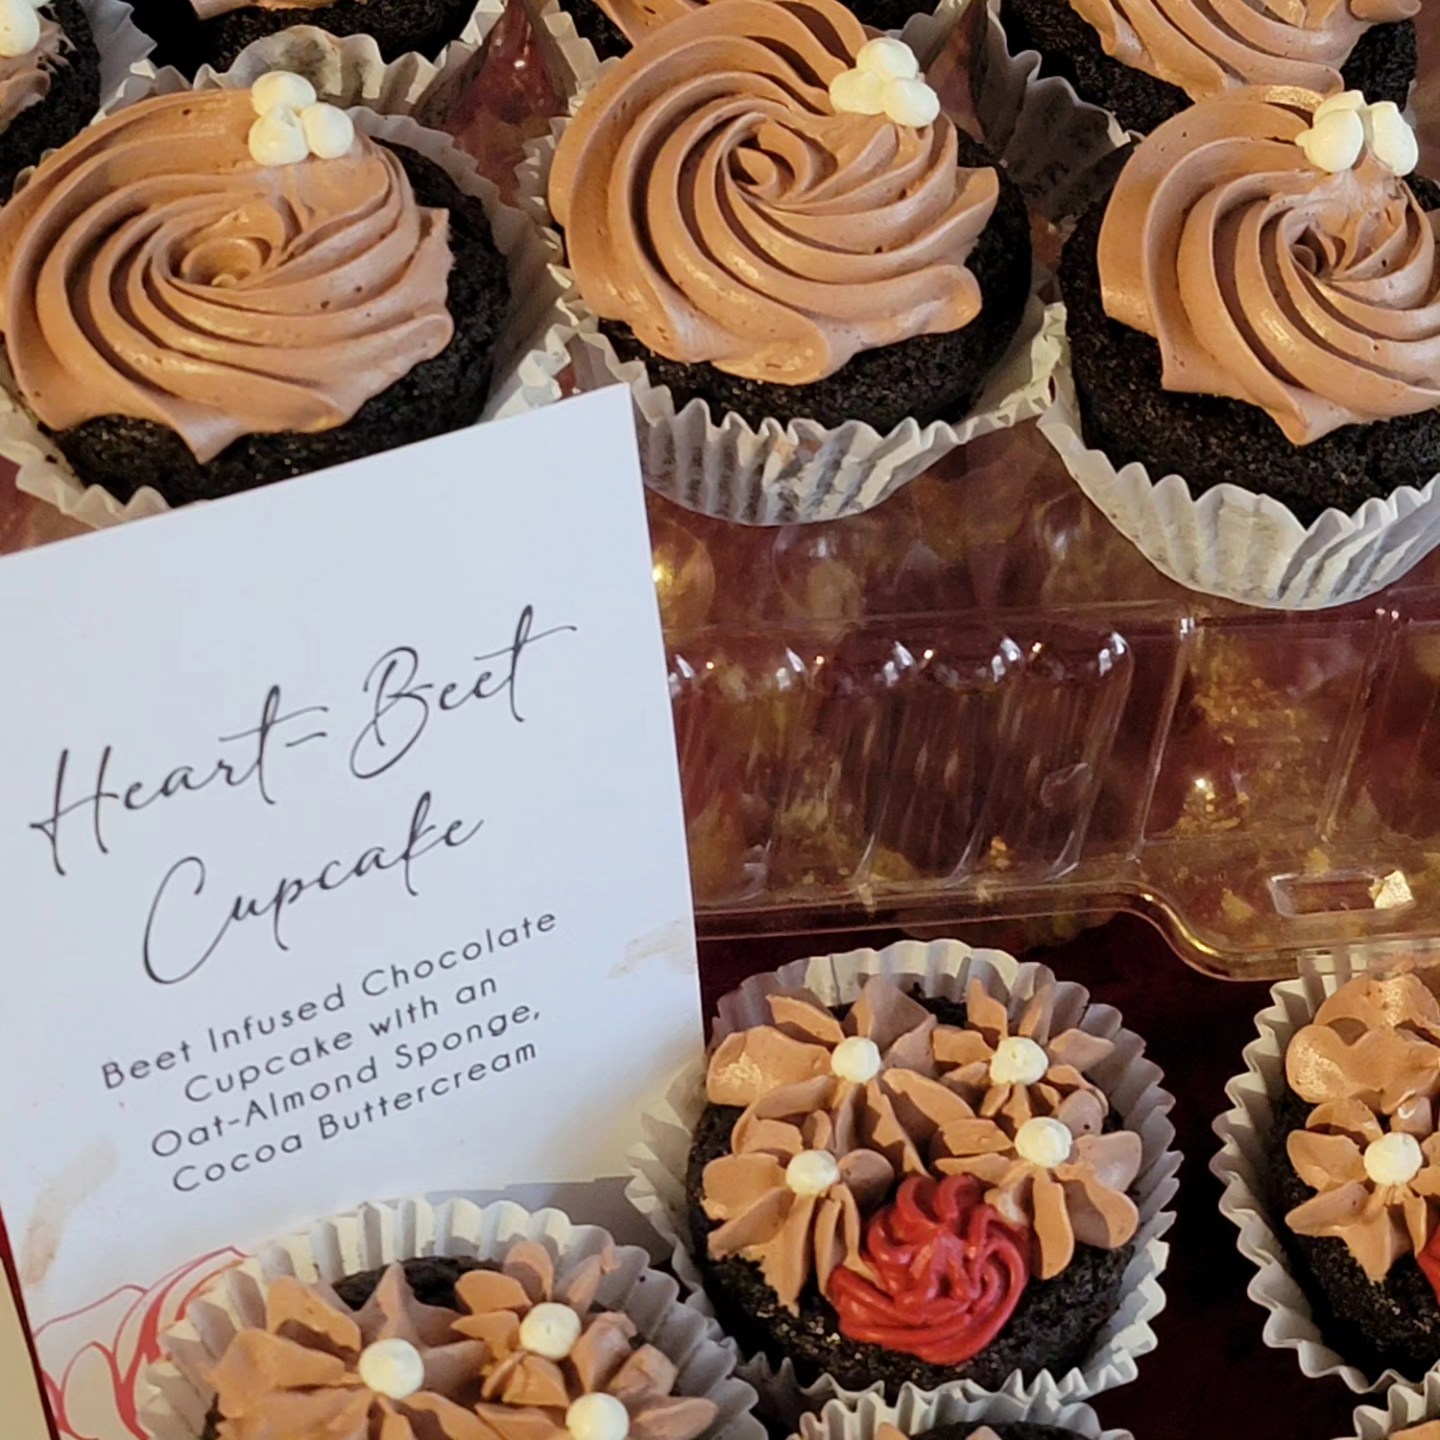 Heart-Beet
Cupcake
Beet Infused Chocolate
Cupcake with an
Oat-Almond Sponge,
Cocoa Buttercream